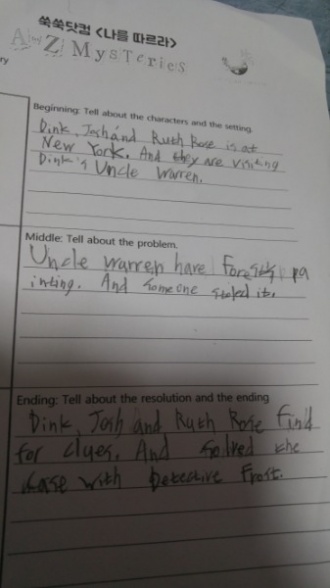 쑥쑥닷컴 <나를 따르라>
A to Z MysTeries
ry
Beginning: Tell about the characters and the setting.
Dink, Josh and Ruth Rose is at
New York. And they are visiting
Dink's Uncle Warren.
Middle: Tell about the problem.
Uncle Warren have Forest pa
inting. And someone stoled it.
Ending: Tell about the resolution and the ending
Dink, Josh and Ruth Rose find
for clues. And solved the
case with Detective Frost.